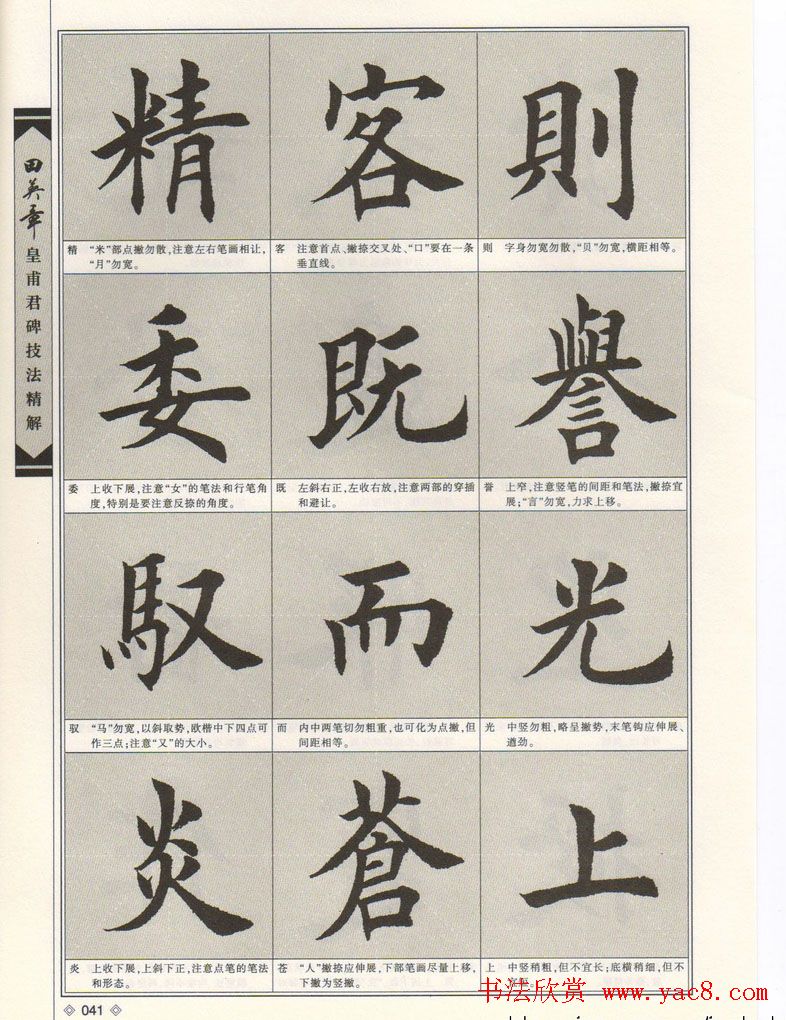 田英章
皇甫君碑技法精解
精
客
則
精 “米”部点撇勿散，注意左右笔画相让，
“月”勿宽。
客 注意首点、撇捺交叉处、“口”要在一条
垂直线。
则 字身勿宽勿散，“贝”勿宽，横距相等。
委
既
譽
委 上收下展，注意“女”的笔法和行笔角
度，特别是要注意反捺的角度。
既 左斜右正，左收右放，注意两部的穿插
和避让。
誉 上窄，注意竖笔的间距和笔法，撇捺宜
展；“言”勿宽，力求上移。
馭
而
光
驭 “马”勿宽，以斜取势，欧楷中下四点可
作三点；注意“又”的大小。
而 内中两笔切勿粗重，也可化为点撇，但
间距相等。
光 中竖勿粗，略呈撇势，末笔钩应伸展、
遒劲。
炎
蒼
上
炎 上收下展，上斜下正，注意点笔的笔法
和形态。
苍 “人”撇捺应伸展，下部笔画尽量上移，
下撇为竖撇。
上 中竖稍粗，但不宜长；底横稍细，但不
书法欣赏 www.yac8.com
041